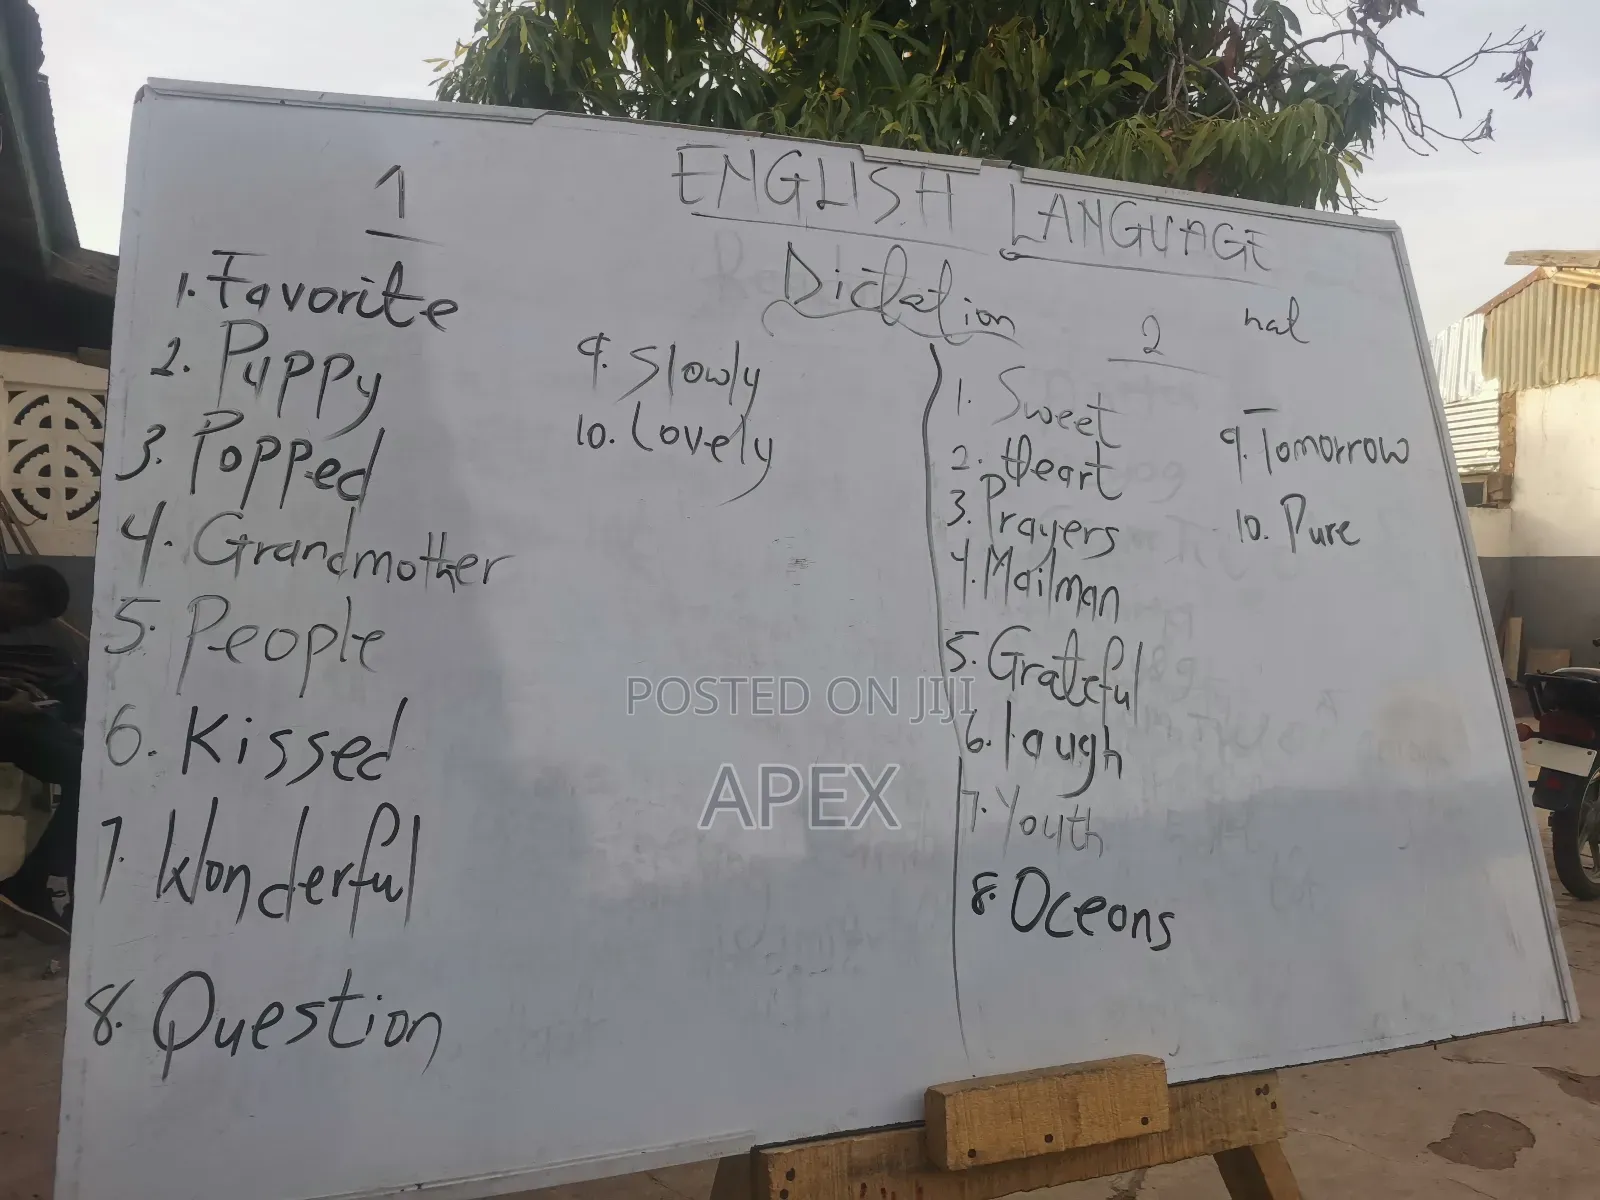 ENGLISH LANGUAGE
Dictation
1
1. Favorite
2. Puppy
3. Popped
4. Grandmother
5. People
6. Kissed
7. Wonderful
8. Question
9. Slowly
10. Lovely
2
1. Sweet
2. Heart
3. Prayers
4. Mailman
5. Grateful
6. laugh
7. Youth
8. Oceans
9. Tomorrow
10. Pure
POSTED ON JIJI
APEX